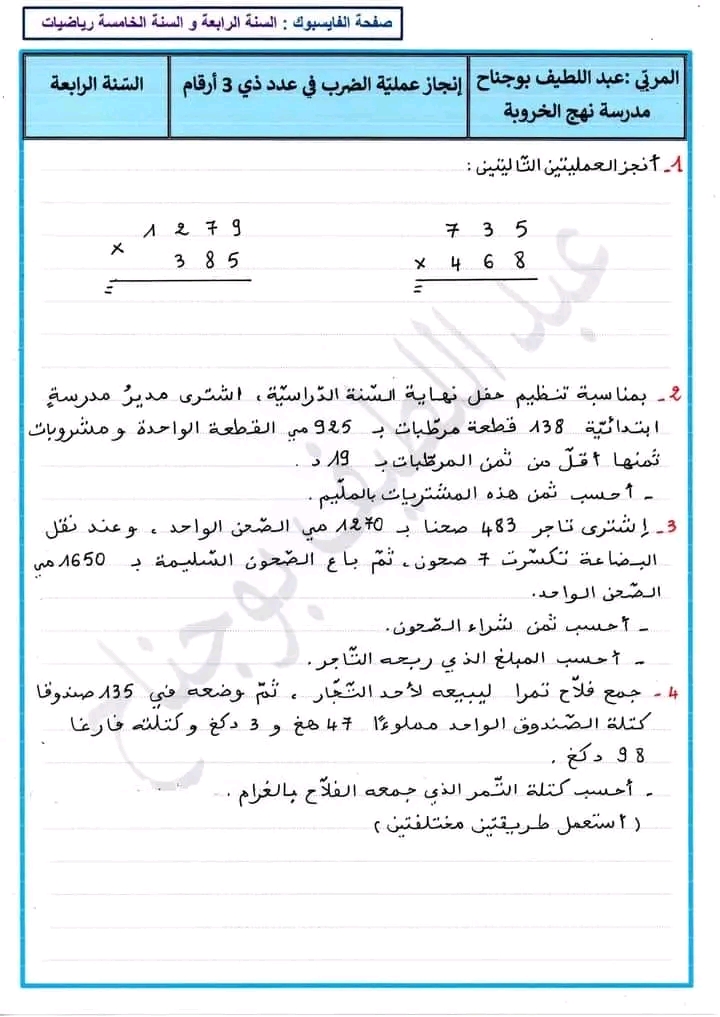 صفحة الفايسبوك : السنة الرابعة و السنة الخامسة رياضيات
المربّي :عبد اللطيف بوجناح
مدرسة نهج الخروبة
إنجاز عمليّة الضرب في عدد ذي 3 أرقام
السّنة الرابعة
1- أنجز العمليتين التّاليتين :
7 3 5
x 4 6 8
=
1 2 7 9
x 3 8 5
=
2- بمناسبة تنظيم حفل نهاية السّنة الدّراسيّة، اشترى مديرُ مدرسةٍ
ابتدائيّة 138 قطعة مرطّبات بـ 925 مي القطعة الواحدة ومشروبات
ثمنها أقلّ من ثمن المرطّبات بـ 19 د .
- أحسب ثمن هذه المشتريات بالملّيم .
3- إشترى تاجر 483 صحنا بـ 1270 مي الصّحن الواحد ، وعند نقل
البضاعة تكسّرت 7 صحون، ثمّ باع الصّحون السّليمة بـ 1650 مي
الصّحن الواحد.
- أحسب ثمن شراء الصّحون.
- أحسب المبلغ الذي ربحه التّاجر.
4- جمع فلاّح تمرا ليبيعه لأحد التّجّار ، ثمّ وضعه في 135 صندوقا
كتلة الصّندوق الواحد مملوءًا 47 هغ و 3 دكغ وكتلته فارغا
98 دكغ .
- أحسب كتلة التّمر الذي جمعه الفلاّح بالغرام .
( أستعمل طريقتين مختلفتين )
عبد اللطيف بوجناح